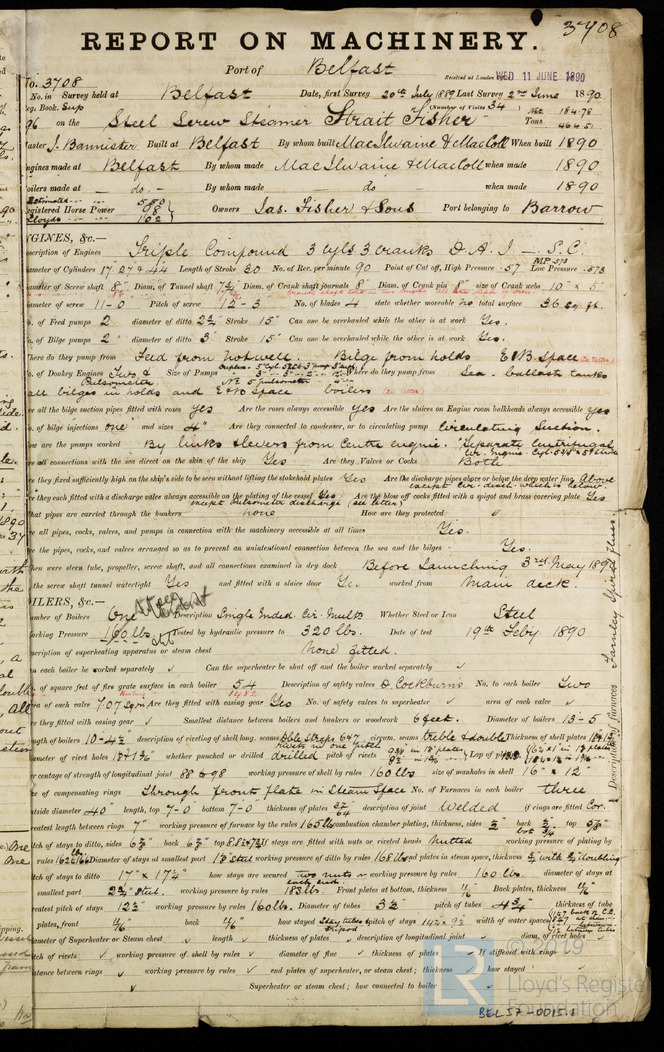 3708
REPORT ON MACHINERY.
Port of Belfast
Received at London WED 11 JUNE 1890
No. 3708
No. in Survey held at Belfast Date, first Survey 20th July 1889 Last Survey 2nd June 1890
Reg. Book. Sup (Number of Visits 34)
96 on the Steel Screw Steamer "Strait Fisher" Tons 184.78 464.51
Master J. Bannister Built at Belfast By whom built MacIlwaine & MacColl When built 1890
Engines made at Belfast By whom made MacIlwaine & MacColl when made 1890
Boilers made at - do - By whom made do when made 1890
Registered Horse Power 98 Owners Jas. Fisher & Sons Port belonging to Barrow
Lloyds 102
ENGINES, &c.—
Description of Engines Triple Compound 3 cyls. 3 cranks D. A. I — S. C.
Diameter of Cylinders 17. 27 & 44 Length of Stroke 30 No. of Rev. per minute 90 Point of Cut off, High Pressure .57 Low Pressure .573
MP .573
Diameter of Screw shaft 8" Diam. of Tunnel shaft Diam. of Crank shaft journals 8" Diam. of Crank pin 8" size of Crank webs 10" × 5"
Diameter of screw 11-0 Pitch of screw 12-3 No. of blades 4 state whether moveable no total surface 36 sq. ft.
No. of Feed pumps 2 diameter of ditto 2½ Stroke 15" Can one be overhauled while the other is at work Yes.
No. of Bilge pumps 2 diameter of ditto 3" Stroke 15" Can one be overhauled while the other is at work Yes.
Where do they pump from Feed from hotwell. Bilge from holds E & B Space
No. of Donkey Engines Two & Pulsometer Size of Pumps Where do they pump from Sea. ballast tanks
all bilges in holds and E & B space boilers
Are all the bilge suction pipes fitted with roses yes Are the roses always accessible yes Are the sluices on Engine room bulkheads always accessible yes
No. of bilge injections one and sizes 4" Are they connected to condenser, or to circulating pump Circulating Suction.
How are the pumps worked By links & levers from Centre engine. "Separate Centrifugal
Are all connections with the sea direct on the skin of the ship Yes Are they Valves or Cocks Both
Are they fixed sufficiently high on the ship's side to be seen without lifting the stokehold plates Yes Are the discharge pipes above or below the deep water line Above
except cir. disch. which is below
Are they each fitted with a discharge valve always accessible on the plating of the vessel Yes Are the blow off cocks fitted with a spigot and brass covering plate Yes
except pulsometer discharge (see letter)
What pipes are carried through the bunkers none How are they protected
Are all pipes, cocks, valves, and pumps in connection with the machinery accessible at all times Yes.
Are the pipes, cocks, and valves arranged so as to prevent an unintentional connection between the sea and the bilges Yes.
When were stern tube, propeller, screw shaft, and all connections examined in dry dock Before Launching 3rd May 1890
Is the screw shaft tunnel watertight Yes and fitted with a sluice door Yes. worked from Main deck.
BOILERS, &c.—
Number of Boilers One Description Single Ended. Cir. Mult. Whether Steel or Iron Steel
Working Pressure 160 lbs Tested by hydraulic pressure to 320 lbs. Date of test 19th Feby. 1890
Description of superheating apparatus or steam chest None fitted.
Can each boiler be worked separately ✓ Can the superheater be shut off and the boiler worked separately ✓
No. of square feet of fire grate surface in each boiler 54 Description of safety valves D. Cockburns No. to each boiler Two
Area of each valve 7.07 sq in Are they fitted with easing gear Yes No. of safety valves to superheater ✓ area of each valve ✓
Are they fitted with easing gear ✓ Smallest distance between boilers and bunkers or woodwork 6 feet. Diameter of boilers 13-5
Length of boilers 10-4½ description of riveting of shell long. seams circum. seams treble & double Thickness of shell plates
Diameter of rivet holes whether punched or drilled drilled pitch of rivets Lap of plating
Percentage of strength of longitudinal joint 88 to 98 working pressure of shell by rules 160 lbs size of manholes in shell 16" × 12"
Size of compensating rings Through front plate in Steam Space No. of Furnaces in each boiler three
Outside diameter 40" length, top 7-0 bottom 7-0" thickness of plates description of joint Welded if rings are fitted Cor.
Greatest length between rings 7" working pressure of furnace by the rules 165 lb combustion chamber plating, thickness, sides back top
Pitch of stays to ditto, sides back top If stays are fitted with nuts or riveted heads Nutted working pressure of plating by
rules 162 lbs Diameter of stays at smallest part working pressure of ditto by rules 168 lb end plates in steam space, thickness
Pitch of stays to ditto 17" × 17½" how stays are secured two nuts working pressure by rules 160 lbs. diameter of stays at
smallest part 2¾" steel. working pressure by rules 183 lbs Front plates at bottom, thickness 11/16 Back plates, thickness 11/16
Greatest pitch of stays 12¾ working pressure by rules 160 lbs. Diameter of tubes 3½ pitch of tubes thickness of tube
plates, front 11/16 back 11/16 how stayed Stay tubes pitch of stays width of water spaces
Diameter of Superheater or Steam chest ✓ length ✓ thickness of plates ✓ description of longitudinal joint ✓ diam. of rivet holes ✓
Pitch of rivets ✓ working pressure of shell by rules ✓ diameter of flue ✓ thickness of plates ✓ If stiffened with rings ✓
Distance between rings ✓ working pressure by rules ✓ end plates of superheater, or steam chest; thickness ✓ how stayed ✓
Superheater or steam chest; how connected to boiler ✓
© 2019
LR Lloyd's Register
Foundation
BEL57-0015.1